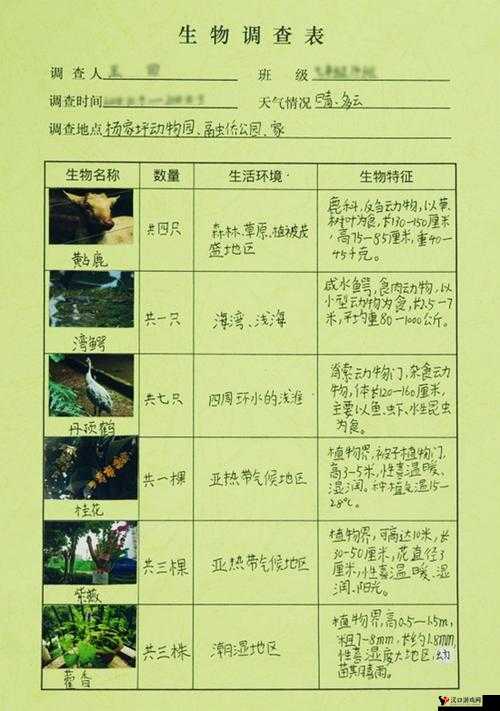 生物调查表
调查人 班级
调查时间 天气情况 晴、多云
调查地点 杨家坪动物园、融侨公园、家
生物名称 数量 生活环境 生物特征
黄占鹿 共四只 森林、草原、植被茂盛地区
鹿科，反刍动物，以草、
树叶为食，长130-150厘米
，高75-85厘米，重40-
45千克。
湾鳄 共一只 海湾、浅海
咸水鳄，食肉动物，以
小型动物为食，长2.5-7
米，平均重80-1000公斤。
丹顶鹤 共七只 四周环水的浅滩
脊索动物门，杂食动
物，体长120-160厘米，
主要以鱼、虾、水生昆虫
为食。
桂花 共一棵 亚热带气候地区
植物界，被子植物门，
高3-5米，性喜温暖、
湿润。种植气温15-
28℃。
紫薇 共三棵 亚热带气候地区
植物界，可高达10米，长
30-50厘米，花直径3
厘米，性喜温暖、湿
润、阳光。
藿香 共三株 潮湿地区
植物界，高0.5-1.5m，
粗7-8mm，长约1.8mm
性喜湿度大地区，幼
苗期喜雨。
汉口游戏网